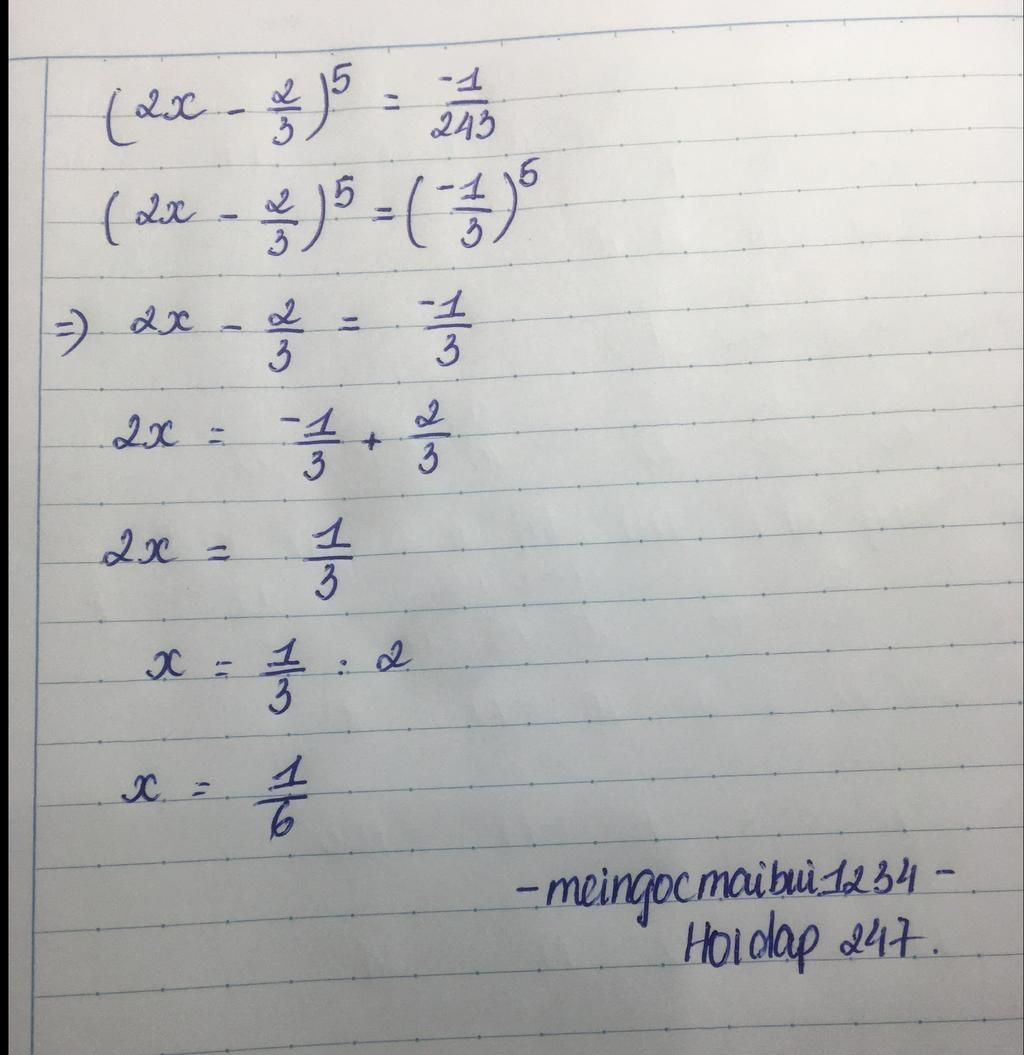 (2x - 2/3)^5 = -1/243
(2x - 2/3)^5 = (-1/3)^5
=) 2x - 2/3 = -1/3
2x = -1/3 + 2/3
2x = 1/3
x = 1/3 : 2
x = 1/6
- meingocmaibui1234 -
Hoidap 247.